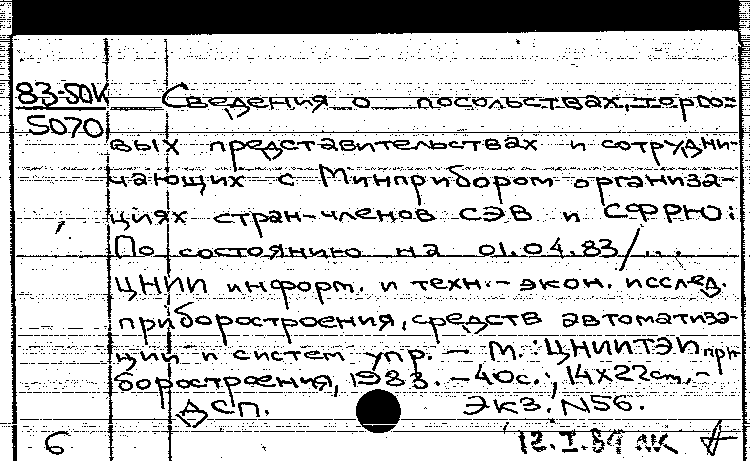 83-50К Сведения о посольствах, торго-
5070 вых представительствах и сотрудни-
чающих с Минприбором организа-
циях стран-членов СЭВ и СФРЮ:
По состоянию на 01.04.83/...
ЦНИИ информ. и техн.-экон. исслед.
приборостроения, средств автоматиза-
ции и систем упр. – М.: ЦНИИТЭИпри-
боростроения, 1983. – 40с.; 14x22см. –
ДСП. Экз. N56.
6 12.I.84 ЛК